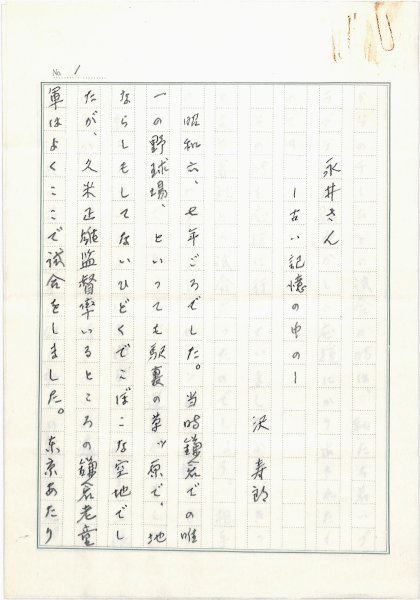 No. 1
永井さん
ー古い記憶の中のー
沢 寿郎
昭和六、七年ごろでした。当時鎌倉での唯
一の野球場、といっても駅裏の草ッ原で、地
ならしもしてないひどくでこぼこな空地でし
たが、久米正雄監督率いるところの鎌倉老童
軍はよくここで試合をしました。東京あたり